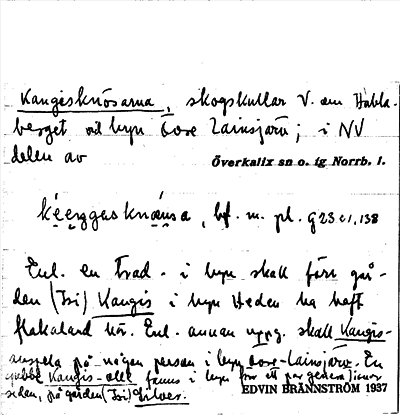 Kangisknösarna, skogskullar V. om Habla-
berget vid byn Övre Lainsjärv; i NV
delen av Överkalix sn o. tg Norrb. l.
bf. m. pl.
Enl. en trad. i byn skall förr går-
den (Isi) Kangis i byn Heden ha haft
flakaland här. Enl. annan uppg. skall Kangis-
anspela på någon person i byn Övre-Lainsjärv. En
gubbe Kangis-Olle fanns i byn för ett par generationer
sedan, på gården (Isi) Silver.
EDVIN BRÄNNSTRÖM 1937